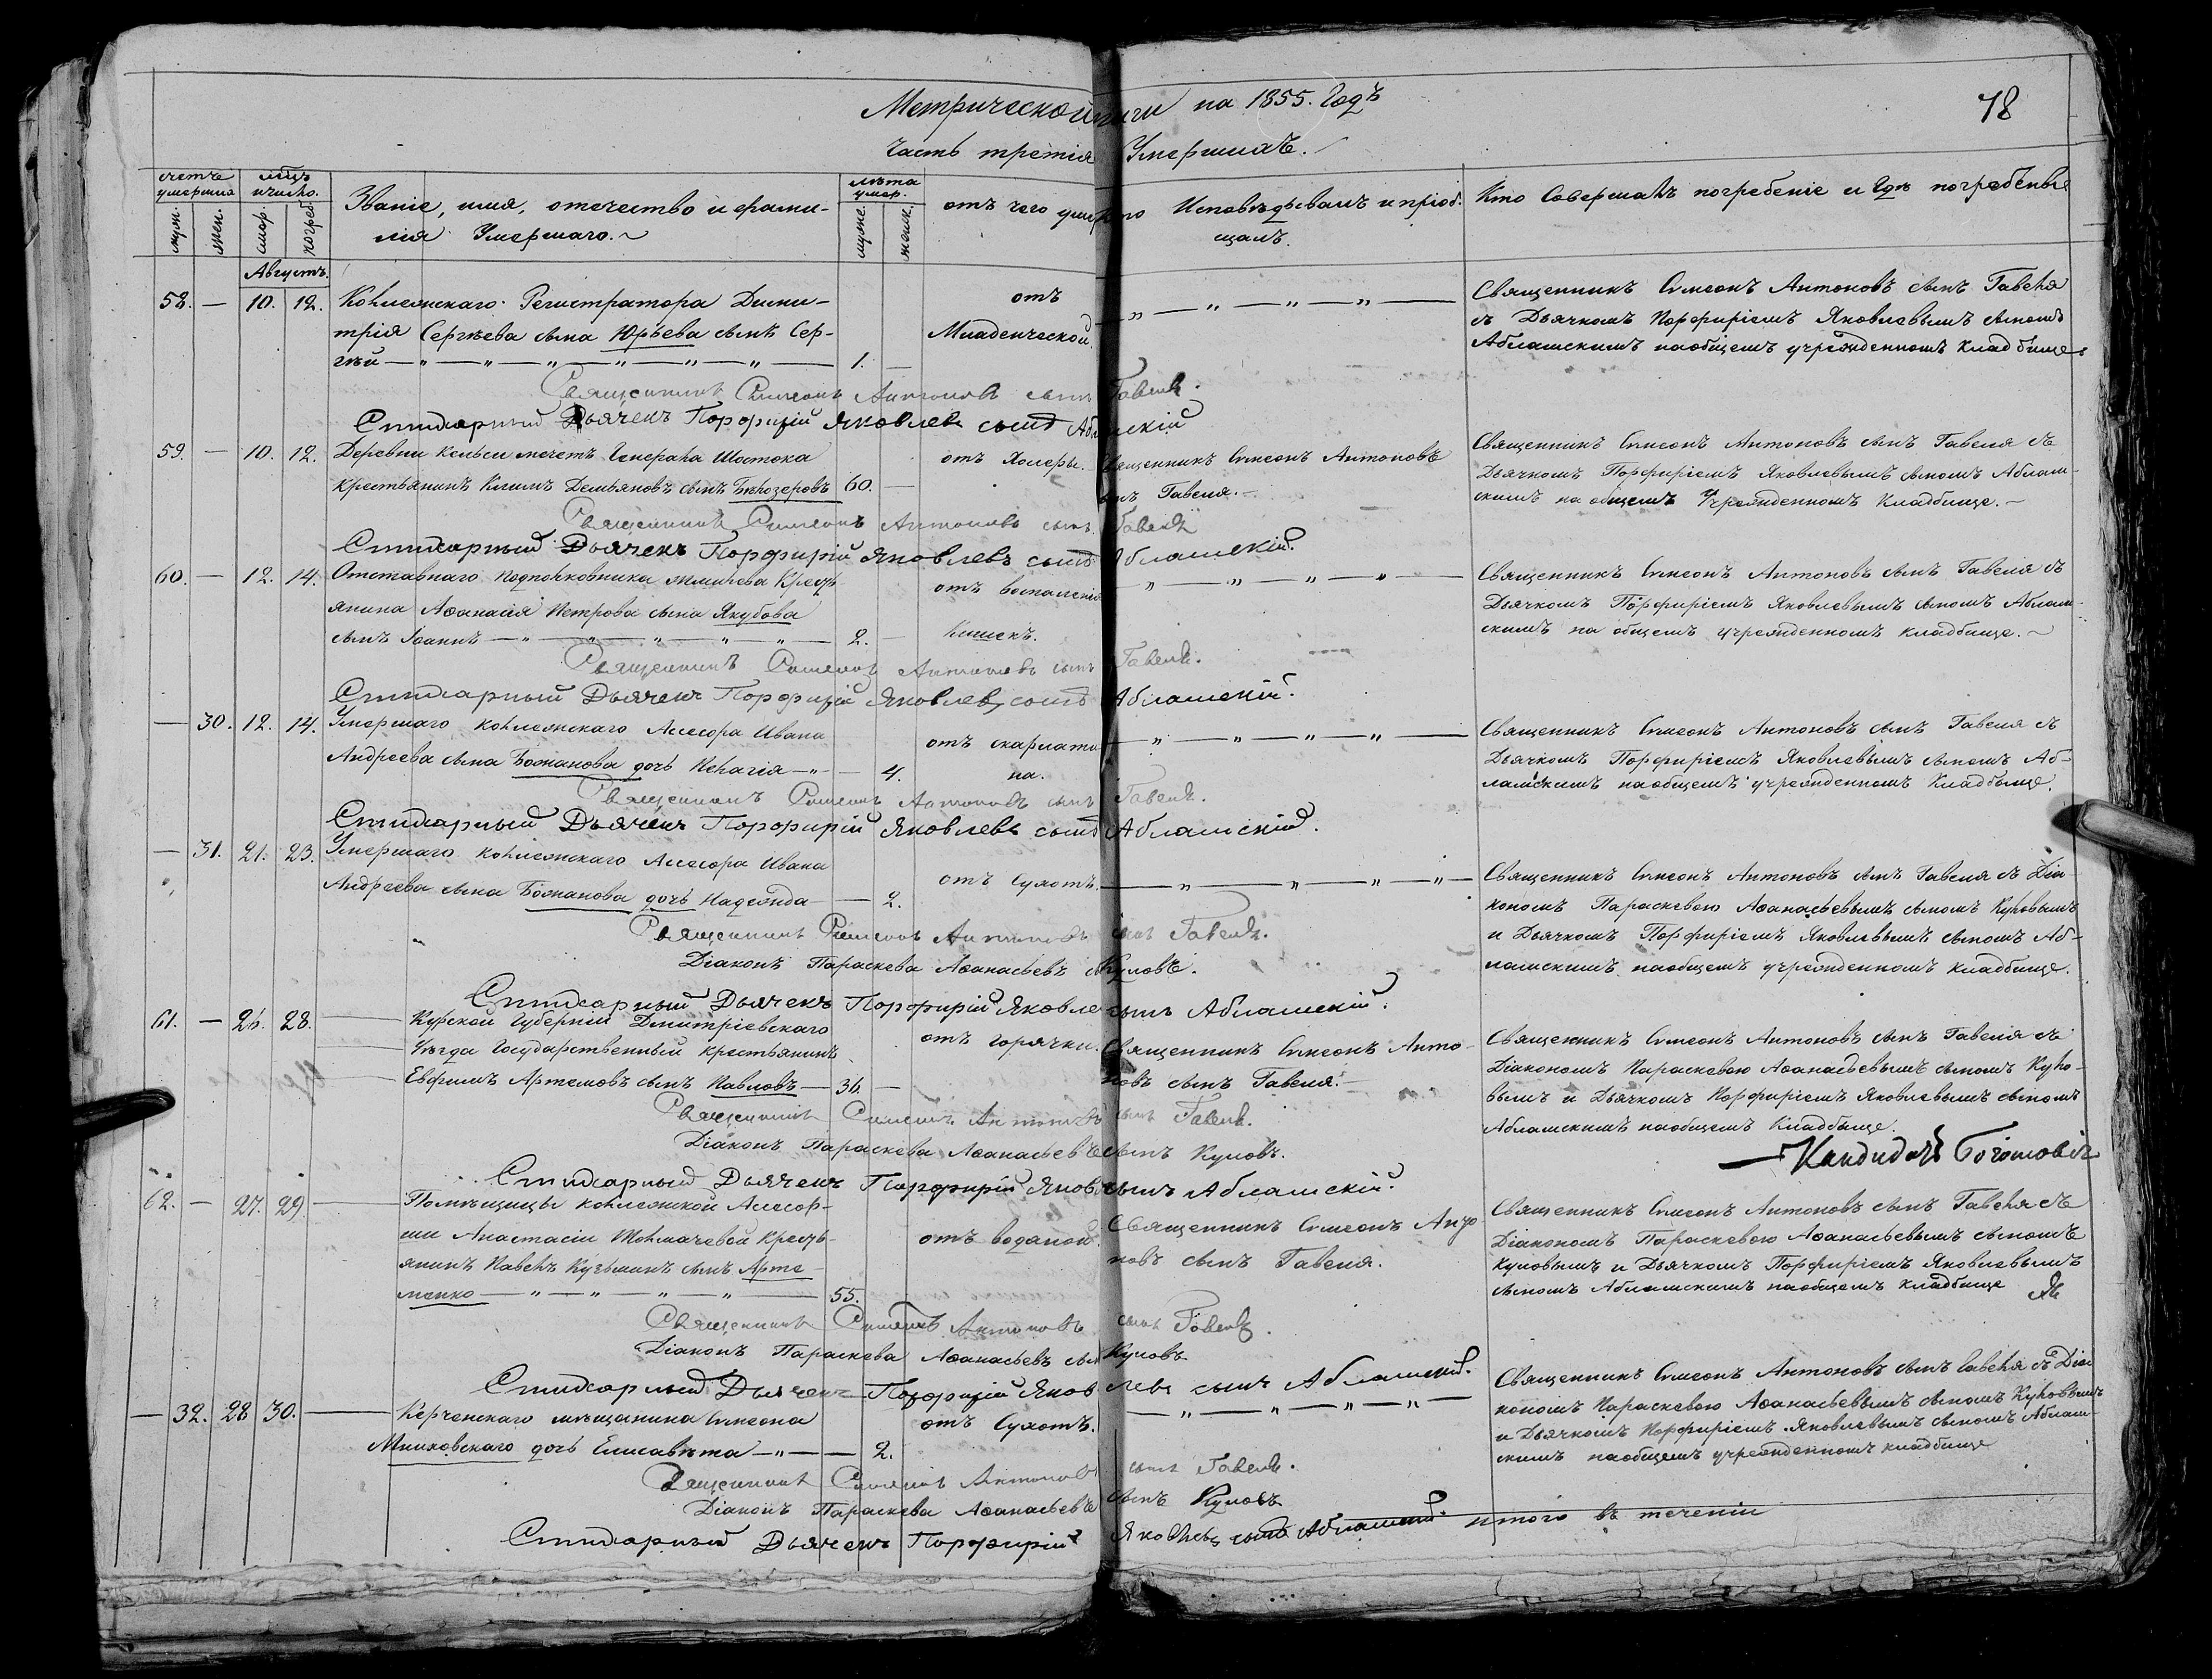 Метрической книги на 1855. Годъ
78
Часть третія Умершихъ.
счетъ умершихъ
муж.
жен.
мѣсяцъ и число.
смер.
погреб.
Званіе, имя, отечество и фами-
лія Умершаго.
лѣта умер.
муже.
женск.
отъ чего умеръ
Кто Исповѣдывалъ и пріоб-
щалъ.
Кто Совершалъ погребеніе и Гдѣ погребены
Августъ.
58. — 10. 12. Коллежскаго Регистратора Дими-
трія Сергѣева сына Юрьева сынъ Сер-
гѣй — " — " — " — " — " — " — 1. —
отъ
Младенческой.
— " — " — " — " —
Священникъ Симеонъ Антоновъ сынъ Гавеля
съ Дьячкомъ Порфиріемъ Яковлевымъ сыномъ
Абламскимъ на общемъ учрежденномъ кладбище
Священникъ Симеонъ Антоновъ сынъ Гавеля.
Стихарный Дьячекъ Порфирій Яковлевъ сынъ Абламскій
59. — 10. 12. Деревни мечетъ Генерала Шостока
крестьянинъ Климъ Демьяновъ сынъ Бѣлозеровъ 60. —
отъ Холеры.
Священникъ Симеонъ Антоновъ
сынъ Гавеля. —
Священникъ Симеонъ Антоновъ сынъ Гавеля съ
Дьячкомъ Порфиріемъ Яковлевымъ сыномъ Аблам-
скимъ на общемъ Учрежденномъ Кладбище. —
Священникъ Симеонъ Антоновъ сынъ Гавеля
Стихарный Дьячекъ Порфирій Яковлевъ сынъ Абламскій.
60. — 12. 14. Отставнаго Подполковника Крестья-
янина Аѳанасія Петрова сына Якубова
сынъ Іоаннъ — " — " — " — " — " — 2. —
отъ воспаленія
Кишекъ.
" — " — " — " —
Священникъ Симеонъ Антоновъ сынъ Гавеля съ
Дьячкомъ Порфиріемъ Яковлевымъ сыномъ Аблам-
скимъ на общемъ учрежденномъ кладбище. —
Священникъ Симеонъ Антоновъ сынъ Гавеля.
Стихарный Дьячекъ Порфирій Яковлевъ сынъ Абламскій.
— 30. 12. 14. Умершаго Коллежскаго Ассесора Ивана
Андреева сына Божанова дочь Пелагія — " — — 4.
отъ скарлати-
на.
— " — " — " — " —
Священникъ Симеонъ Антоновъ сынъ Гавеля съ
Дьячкомъ Порфиріемъ Яковлевымъ сыномъ Аб-
ламскимъ на общемъ учрежденномъ Кладбище.
Священникъ Симеонъ Антоновъ сынъ Гавеля.
Стихарный Дьячекъ Порфирій Яковлевъ сынъ Абламскій.
— 31. 21. 23. Умершаго Коллежскаго Ассесора Ивана
Андреева сына Божанова дочь Надежда — — 2.
отъ Сухотъ.
— " — " — " — " —
Священникъ Симеонъ Антоновъ сынъ Гавеля съ Діа-
кономъ Параскевою Аѳанасьевымъ сыномъ Куловымъ
и Дьячкомъ Порфиріемъ Яковлевымъ сыномъ Аб-
ламскимъ на общемъ учрежденномъ кладбище.
Священникъ Симеонъ Антоновъ сынъ Гавеля.
Діаконъ Параскева Аѳанасьевъ сынъ Куловъ.
Стихарный Дьячекъ Порфирій Яковлевъ сынъ Абламскій.
61. — 26. 28. Курской Губерніи Дмитріевскаго
Уѣзда Государственный крестьянинъ
Евфимъ Артемовъ сынъ Павловъ — 36. —
отъ горячки.
Священникъ Симеонъ Анто-
новъ сынъ Гавеля. —
Священникъ Симеонъ Антоновъ сынъ Гавеля съ
Діакономъ Параскевою Аѳанасьевымъ сыномъ Куло-
вымъ и Дьячкомъ Порфиріемъ Яковлевымъ сыномъ
Абламскимъ на общемъ Кладбище.
Священникъ Симеонъ Антоновъ сынъ Гавеля.
Діаконъ Параскева Аѳанасьевъ сынъ Куловъ.
Кандидатъ
Стихарный Дьячекъ Порфирій Яковлевъ сынъ Абламскій.
62. — 27. 29. Помѣщицы Коллежской Ассесор-
ши Анастасіи Толмачевой Кресть-
янинъ Павелъ Кузьминъ сынъ Арте-
менко — " — " — " — " — 55.
отъ водяной.
Священникъ Симеонъ Анто-
новъ сынъ Гавеля.
Священникъ Симеонъ Антоновъ сынъ Гавеля съ
Діакономъ Параскевою Аѳанасьевымъ сыномъ
Куловымъ и Дьячкомъ Порфиріемъ Яковлевымъ
сыномъ Абламскимъ на общемъ кладбище
Священникъ Симеонъ Антоновъ сынъ Гавеля.
Діаконъ Параскева Аѳанасьевъ сынъ Куловъ
Стихарный Дьячекъ Порфирій Яковлевъ сынъ Абламскій.
— 32. 28. 30. Керченскаго мѣщанина Симеона
Минковскаго дочь Елисавѣта — " — — 2.
отъ Сухотъ.
— " — " — " — " —
Священникъ Симеонъ Антоновъ сынъ Гавеля съ Діа-
кономъ Параскевою Аѳанасьевымъ сыномъ Куловымъ
и Дьячкомъ Порфиріемъ Яковлевымъ сыномъ Аблам-
скимъ на общемъ учрежденномъ кладбище
Священникъ Симеонъ Антоновъ сынъ Гавеля.
Діаконъ Параскева Аѳанасьевъ сынъ Куловъ
Стихарный Дьячекъ Порфирій Яковлевъ сынъ Абламскій.
итого въ теченіи